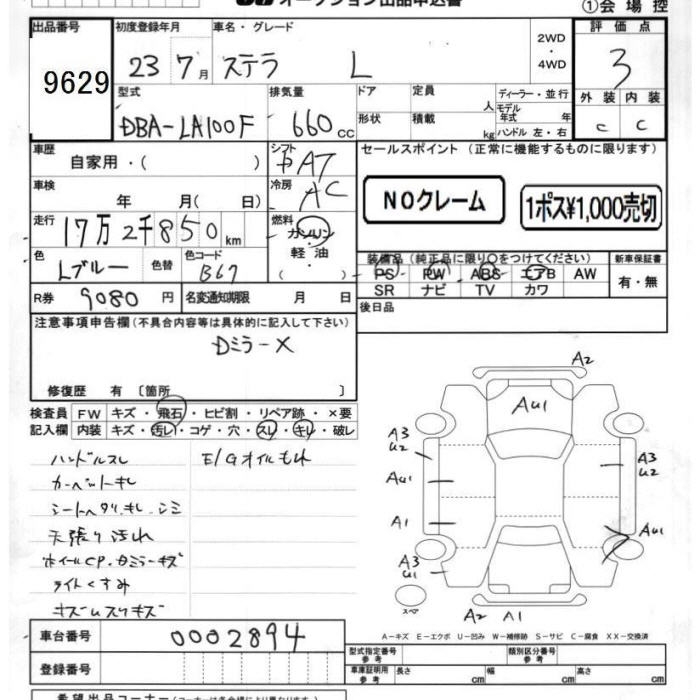 オークション出品申込書
①会場控
出品番号
9629
初度登録年月
23 7月
車名・グレード
ステラ L
2WD
・
4WD
評価点
3
型式
DBA-LA100F
排気量
660cc
ドア
形状
定員
人
積載
kg
ディーラー・並行
モデル年式 年
ハンドル 左・右
外装 内装
C C
車歴
自家用・( )
シフト
AT
セールスポイント(正常に機能するものに限ります)
NOクレーム
1ポス¥1,000売切
車検
年 月( 日)
冷房
AC
走行
17万2千850km
燃料
ガソリン
・
軽油
( )
色
Lブルー
色替
色コード
B67
装備品(純正品に限り○をつけてください)
PS PW ABS エアB AW
SR ナビ TV カワ
新車保証書
有・無
R券
9080円
名変通知期限 月 日
後日品
注意事項申告欄(不具合内容等は具体的に記入して下さい)
Dミラー×
修復歴 有〔箇所 〕
検査員記入欄
FW キズ・飛石・ヒビ割・リペア跡・×要
内装 キズ・汚レ・コゲ・穴・スレ・キレ・破レ
ハンドルスレ
E/Gオイルもれ
カーペットキレ
シートヘタリ.キレ.シミ
天張り汚れ
ホイールCP.カミラーキズ
ライトくすみ
キズ
A2
AU1
A3
U2
A3
U2
AU1
A1
AU1
A3
U1
スペア
A2 A1
A－キズ E－エクボ U－凹み W－補修跡 S－サビ C－腐食 XX－交換済
車台番号
0002894
登録番号
型式指定番号
参考
類別区分番号
参考
車庫証明用
参考
長さ cm
幅 cm
高さ cm
希望出品コーナー